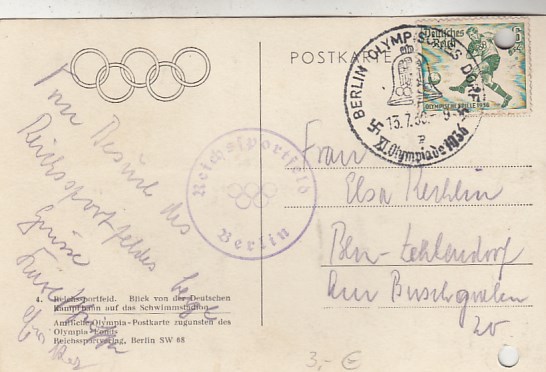 POSTKARTE
Deutsches
Reich
OLYMPISCHE SPIELE 1936
BERLIN OLYMPISCHES DORF
13.7.36.-9
XI. Olympiade 1936
Reichssportfeld
Berlin
Vom Besuch des
Reichssportfeldes
Grüsse
Frau
Elsa
Bln-Zehlendorf
Am Buschgraben
20.
4. Reichssportfeld. Blick von der Deutschen
Kampfbahn auf das Schwimmstadion
Amtliche Olympia-Postkarte zugunsten des
Olympia-Fonds
Reichssportverlag, Berlin SW 68
3,- €